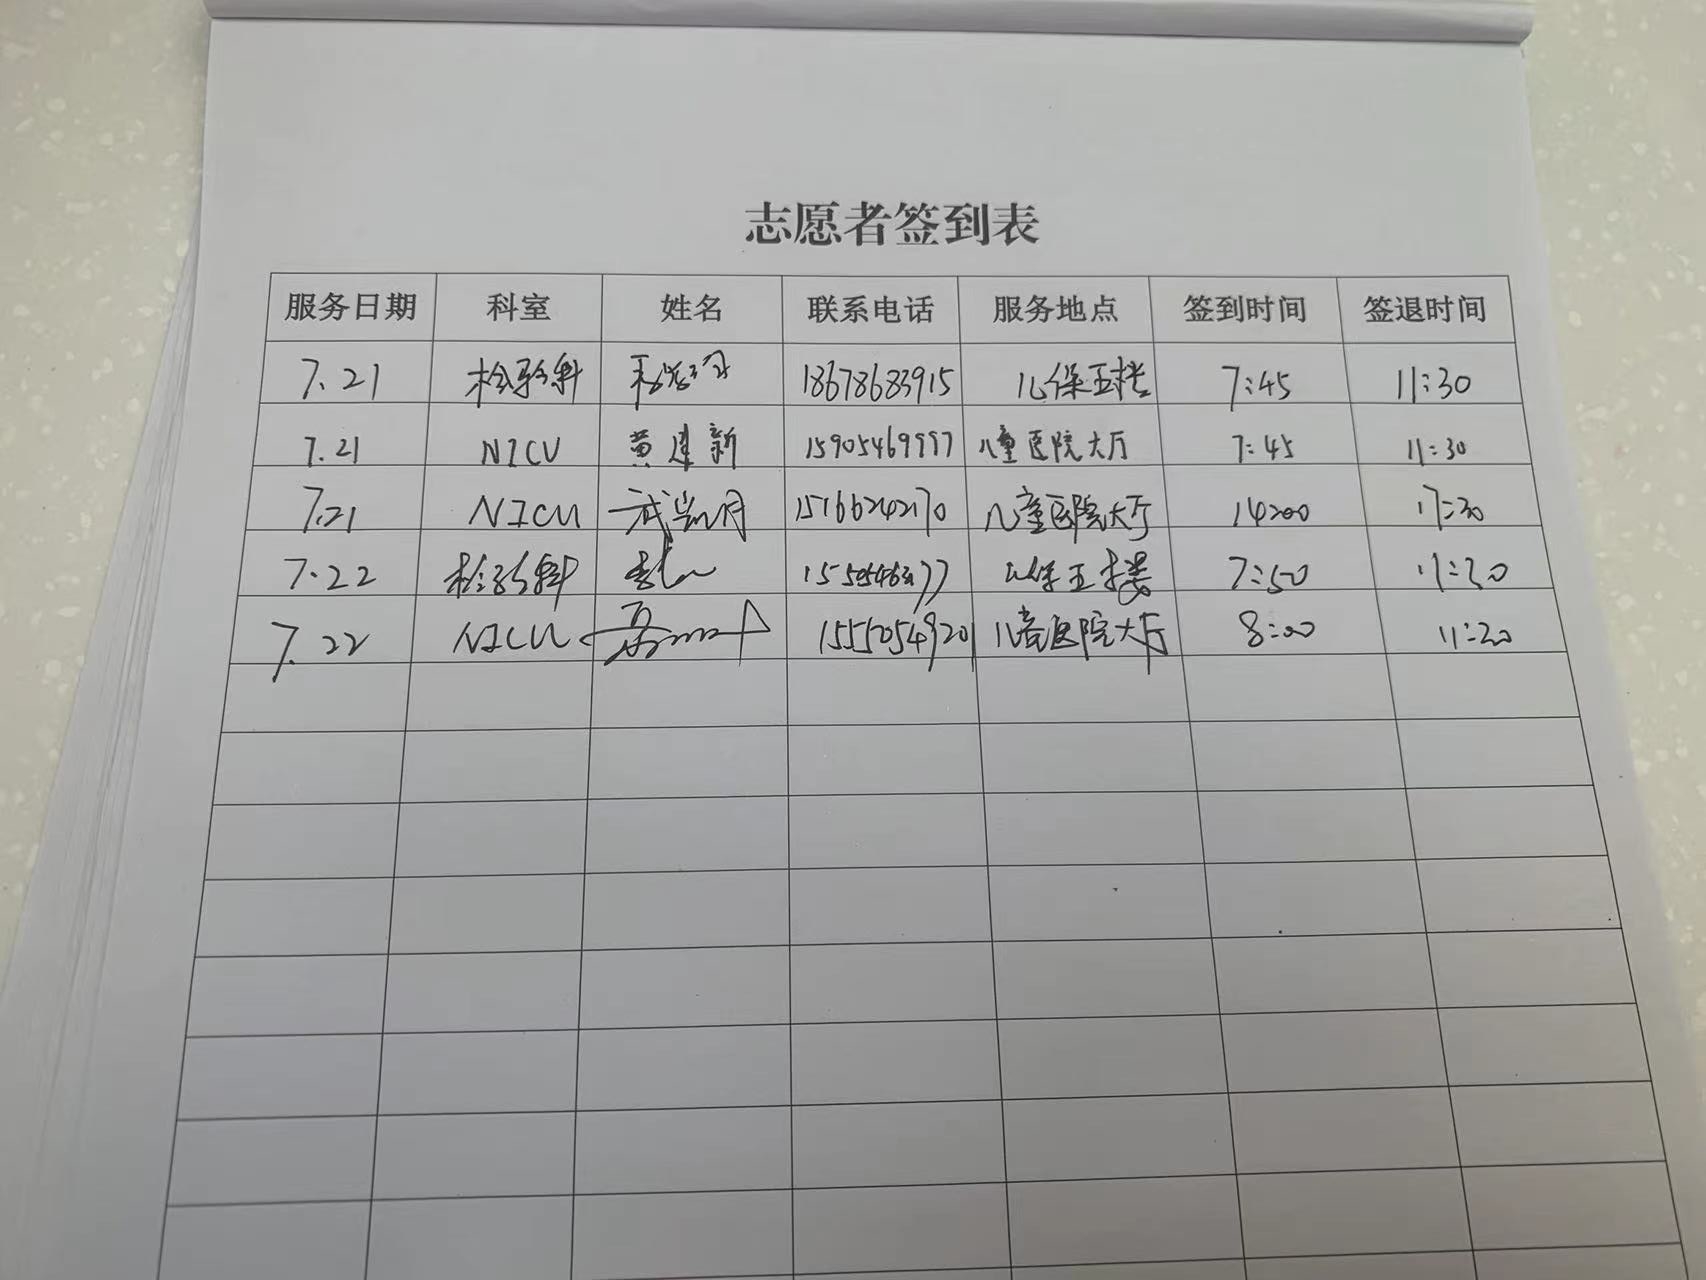 志愿者签到表
服务日期 科室 姓名 联系电话 服务地点 签到时间 签退时间
7.21 检验科 18678683915 儿保五楼 7:45 11:30
7.21 NICU 黄建新 15905469997 儿童医院大厅 7:45 11:30
7.21 NICU 15166242170 儿童医院大厅 14:00 17:30
7.22 检验科 儿保五楼 7:50 11:30
7.22 NICU 儿童医院大厅 8:00 11:30